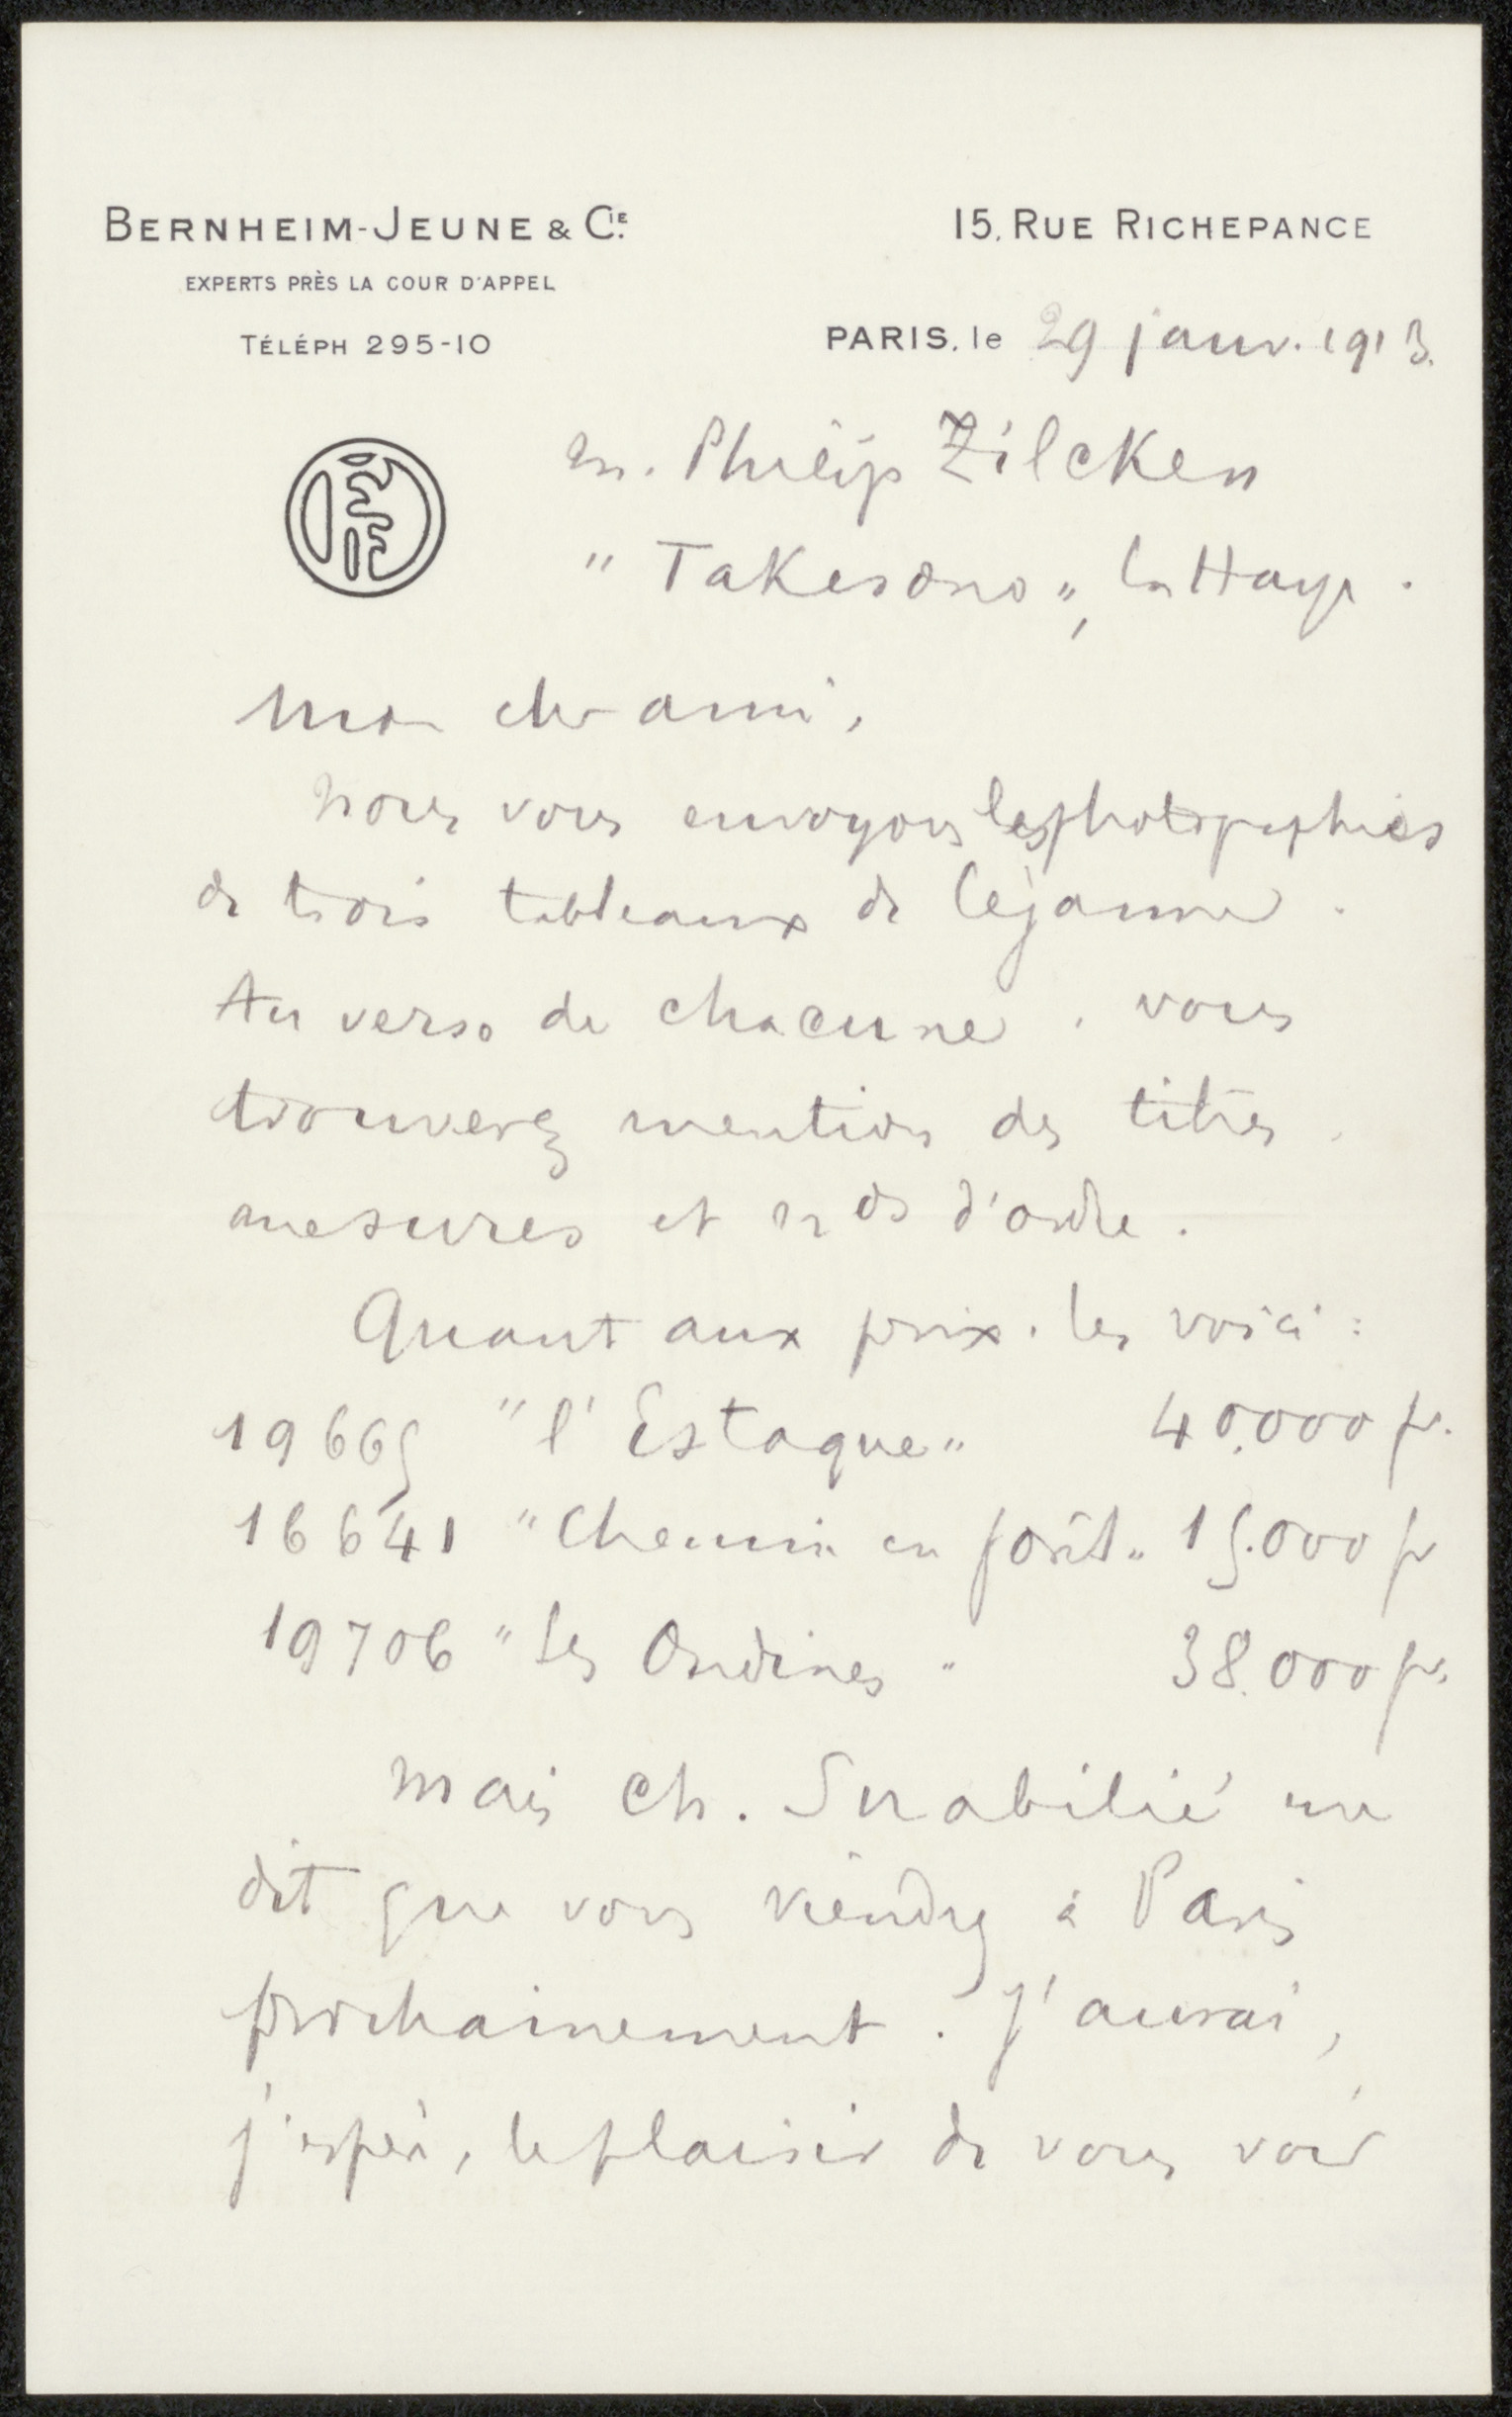 BERNHEIM-JEUNE & CIE.
EXPERTS PRÈS LA COUR D'APPEL
TÉLÉPH 295-10
15, RUE RICHEPANCE
PARIS, le 29 janv. 1913.
M. Philip Zilcken
"Takesono", La Haye.
Mon cher ami,
Nous vous envoyons les photographies
de trois tableaux de Cézanne.
Au verso de chacune, vous
trouverez mention des titres,
mesures et nos d'ordre.
Quant aux prix, les voici :
19665 "l'Estaque" 40.000 fr.
16641 "Chemin en forêt" 15.000 fr
19706 "Les Ondines" 38.000 fr.
Mais Ch. me
dit que vous viendrez à Paris
prochainement. J'aurai,
j'espère, le plaisir de vous voir